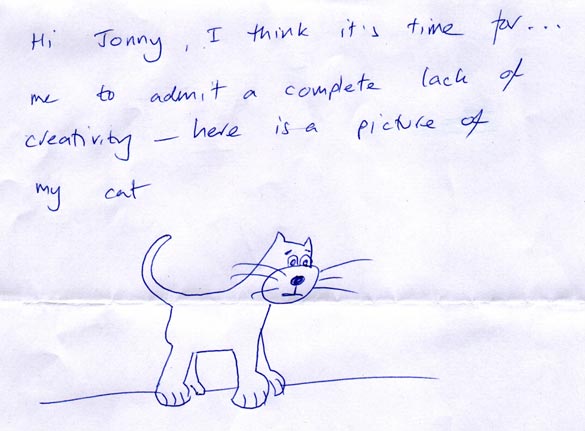 Hi Jonny, I think it's time for...
me to admit a complete lack of
creativity – here is a picture of
my cat